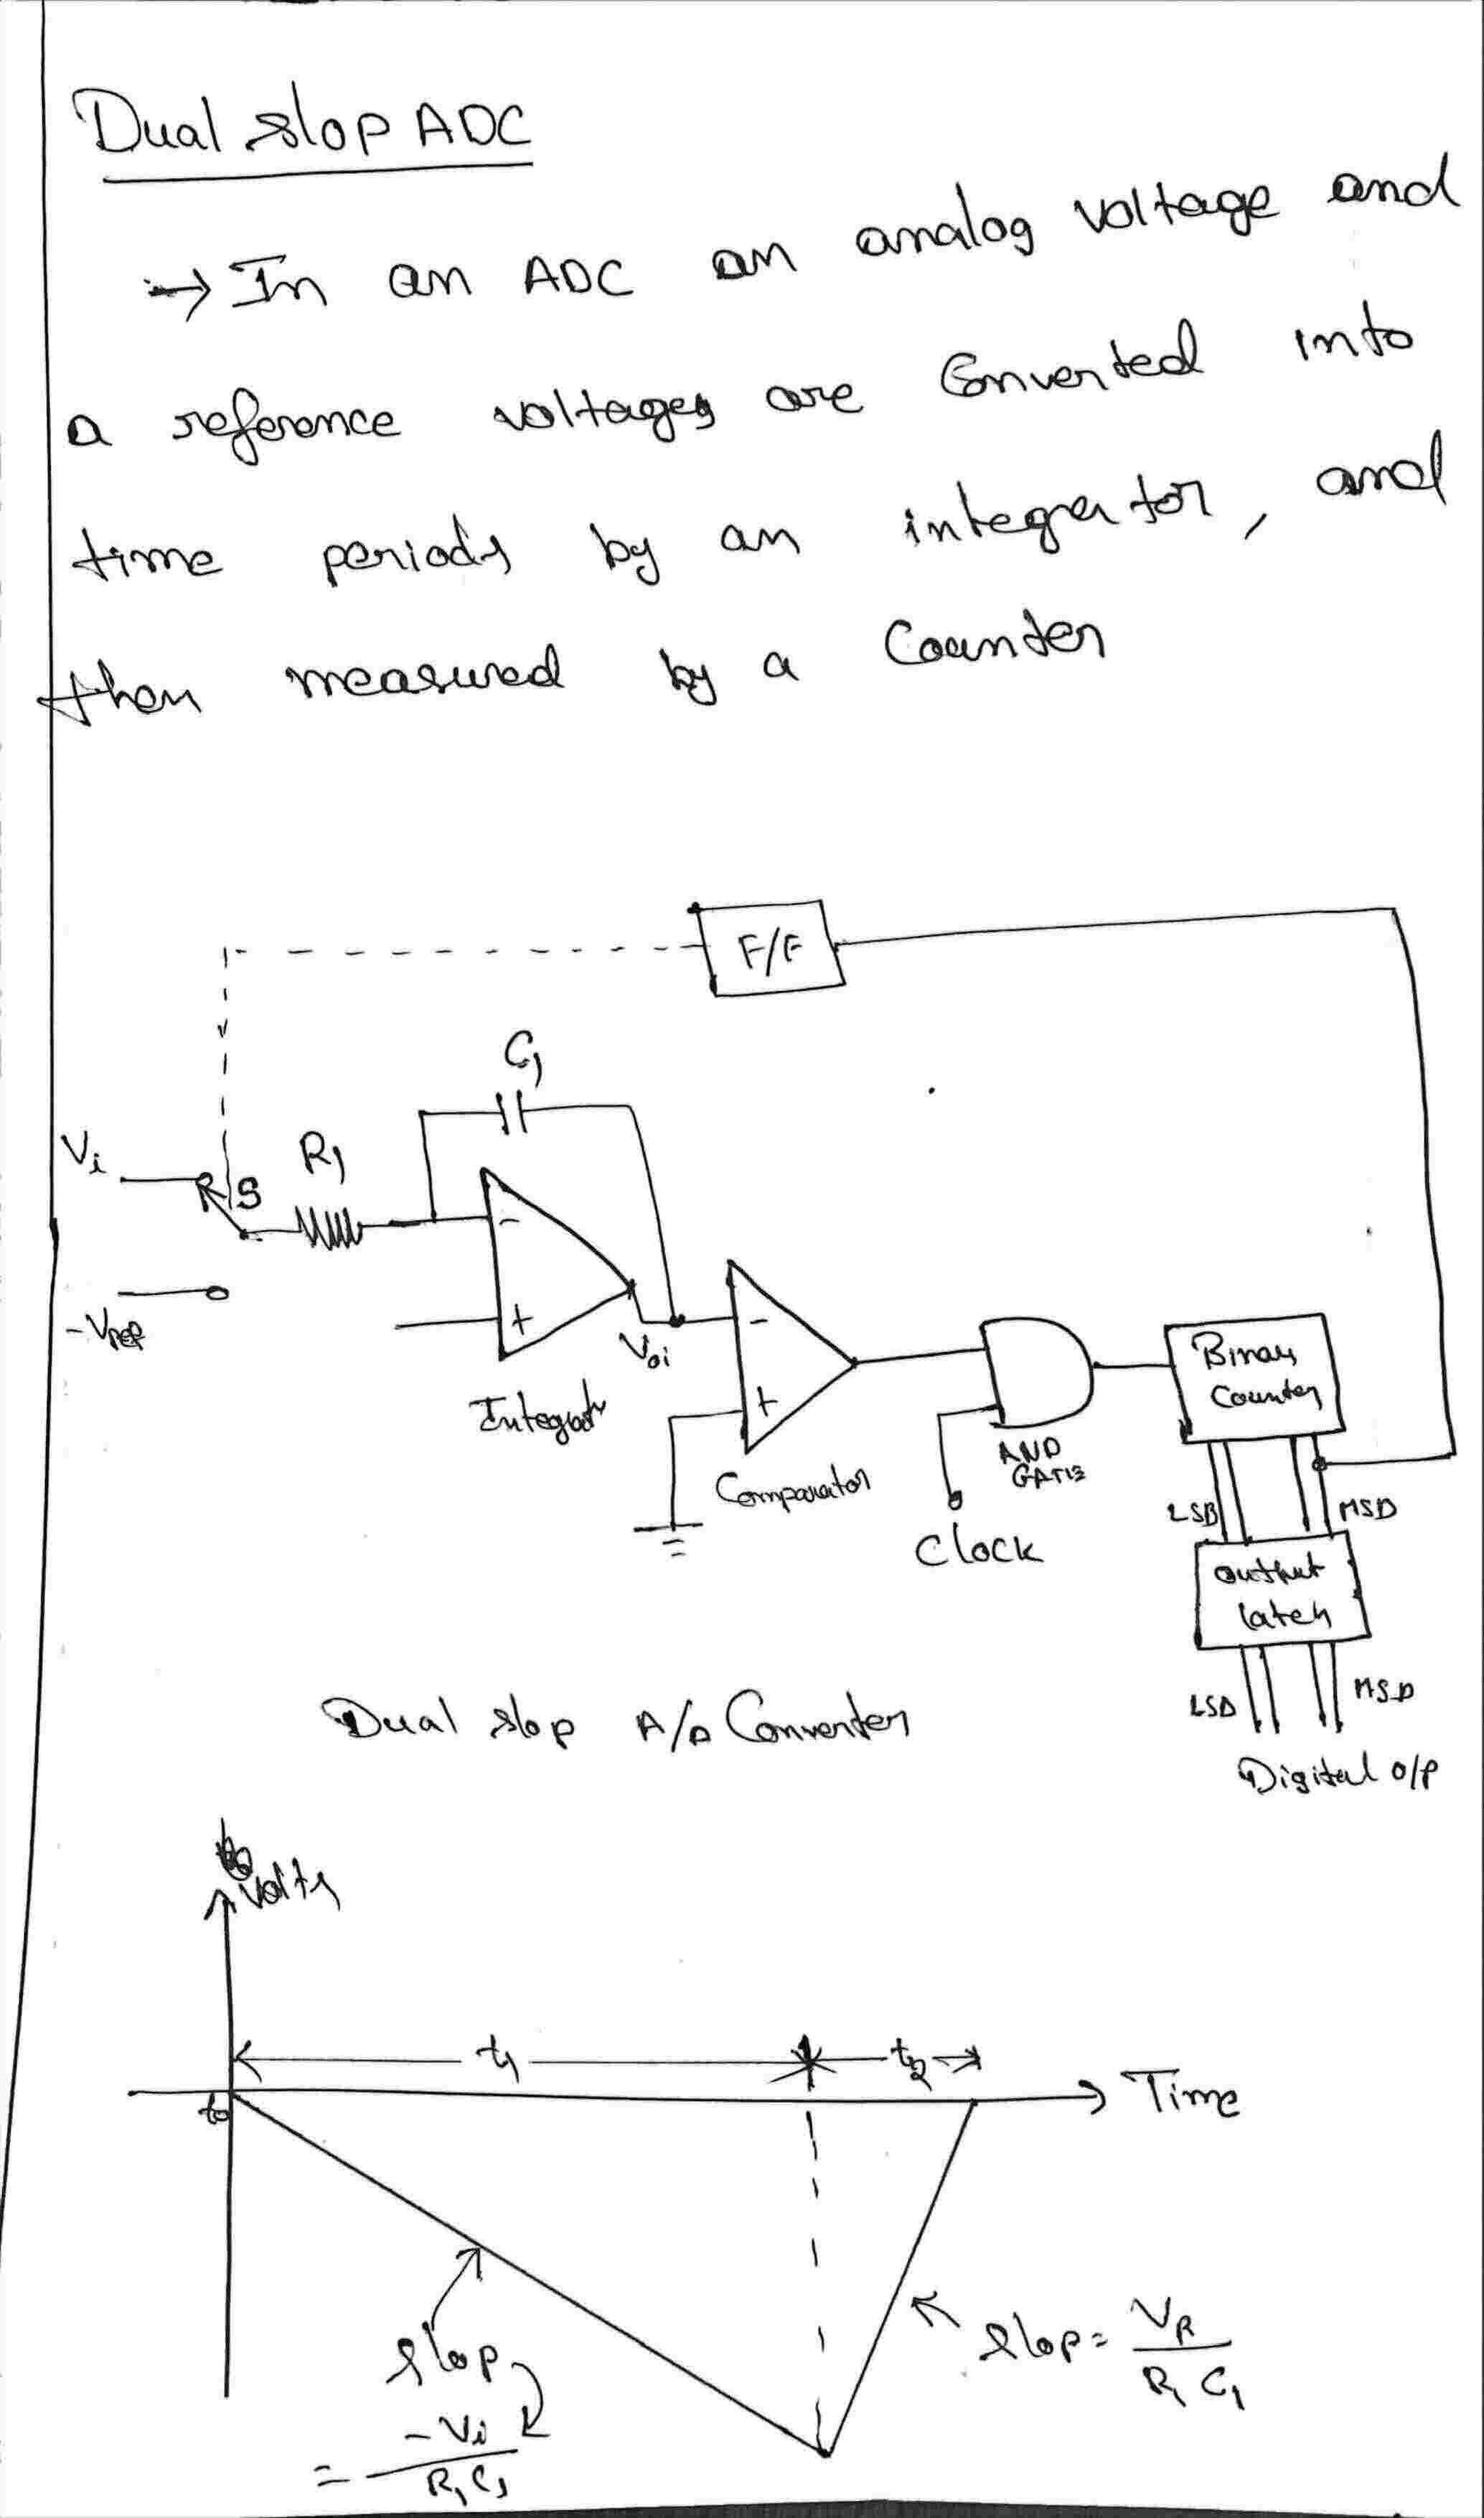 Dual slop ADC
→ In an ADC an analog voltage and
a reference voltages are Converted into
time periods by an integrator, and
then measured by a Counter
F/F
C1
Vi
R1
S
-
+
-VRef
Voi
Integrator
-
+
Comparator
AND
GATE
Clock
Binary
Counter
LSB
MSD
output
latch
LSD
MSD
Digital o/p
Dual slop A/D Converter
Volts
t1
t2
Time
t0
slop
= -Vi / R1 C1
slop = VR / R1 C1